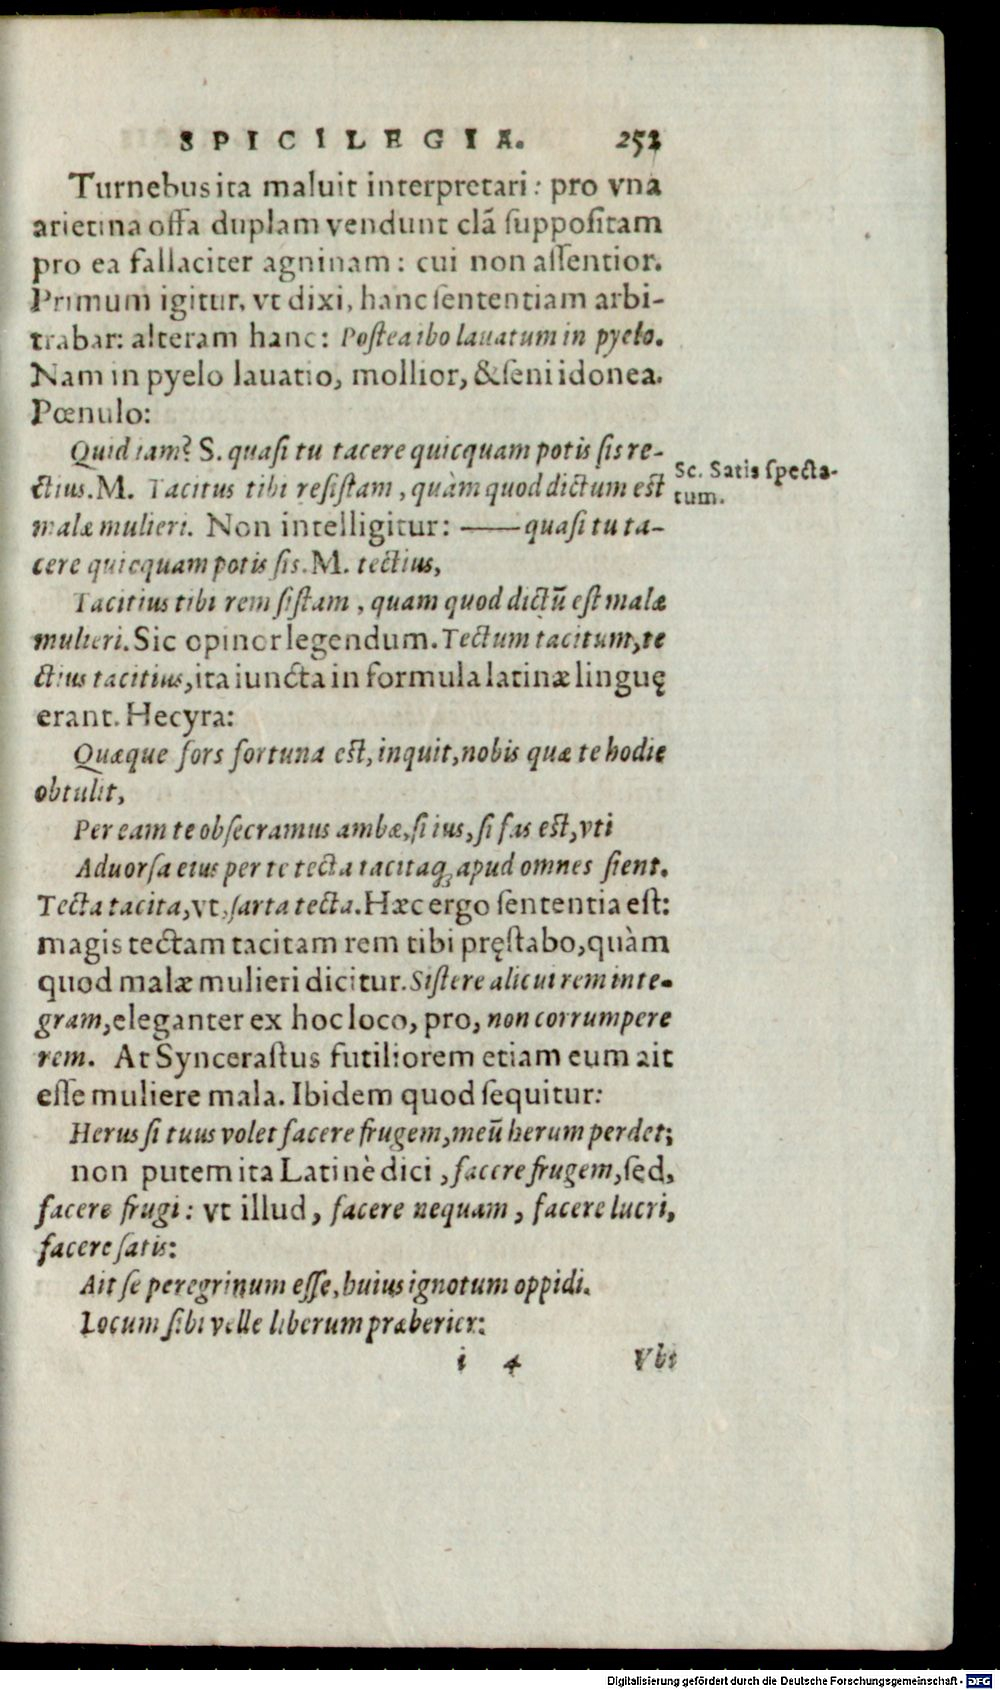 SPICILEGIA. 252
Turnebus ita maluit interpretari: pro vna
arietina offa duplam vendunt clā ſuppoſitam
pro ea fallaciter agninam: cui non aſſentior.
Primum igitur, vt dixi, hanc ſententiam arbi-
trabar: alteram hanc: Poſtea ibo lauatum in pyelo.
Nam in pyelo lauatio, mollior, & ſeni idonea.
Pœnulo:
Quid iam? S. quaſi tu tacere quicquam potis ſis re-
ctius. M. Tacitus tibi reſiſtam, quàm quod dictum est
malæ mulieri. Non intelligitur: —— quaſi tu ta-
cere quicquam potis ſis. M. tectius,
Sc. Satis ſpecta-
tum.
Tacitius tibi rem ſiſtam, quam quod dictū eſt malæ
mulieri. Sic opinor legendum. Tectum tacitum, te
ctius tacitius, ita iuncta in formula latinæ linguę
erant. Hecyra:
Quæque fors fortuna est, inquit, nobis quæ te hodie
obtulit,
Per eam te obſecramus ambæ, ſi ius, ſi fas est, vti
Aduorſa eius per te tecta tacitaq; apud omnes ſient.
Tecta tacita, vt, ſarta tecta. Hæc ergo ſententia eſt:
magis tectam tacitam rem tibi pręſtabo, quàm
quod malæ mulieri dicitur. Siſtere alicui rem inte-
gram, eleganter ex hoc loco, pro, non corrumpere
rem. At Synceraſtus futiliorem etiam eum ait
eſſe muliere mala. Ibidem quod ſequitur:
Herus ſi tuus volet facere frugem, meū herum perdet;
non putem ita Latinè dici, facere frugem, ſed,
facere frugi: vt illud, facere nequam, facere lucri,
facere ſatis:
Ait ſe peregrinum eſſe, huius ignotum oppidi.
Locum ſibi velle liberum præberier:
i 4 Vbi
Digitalisierung gefördert durch die Deutsche Forschungsgemeinschaft - DFG